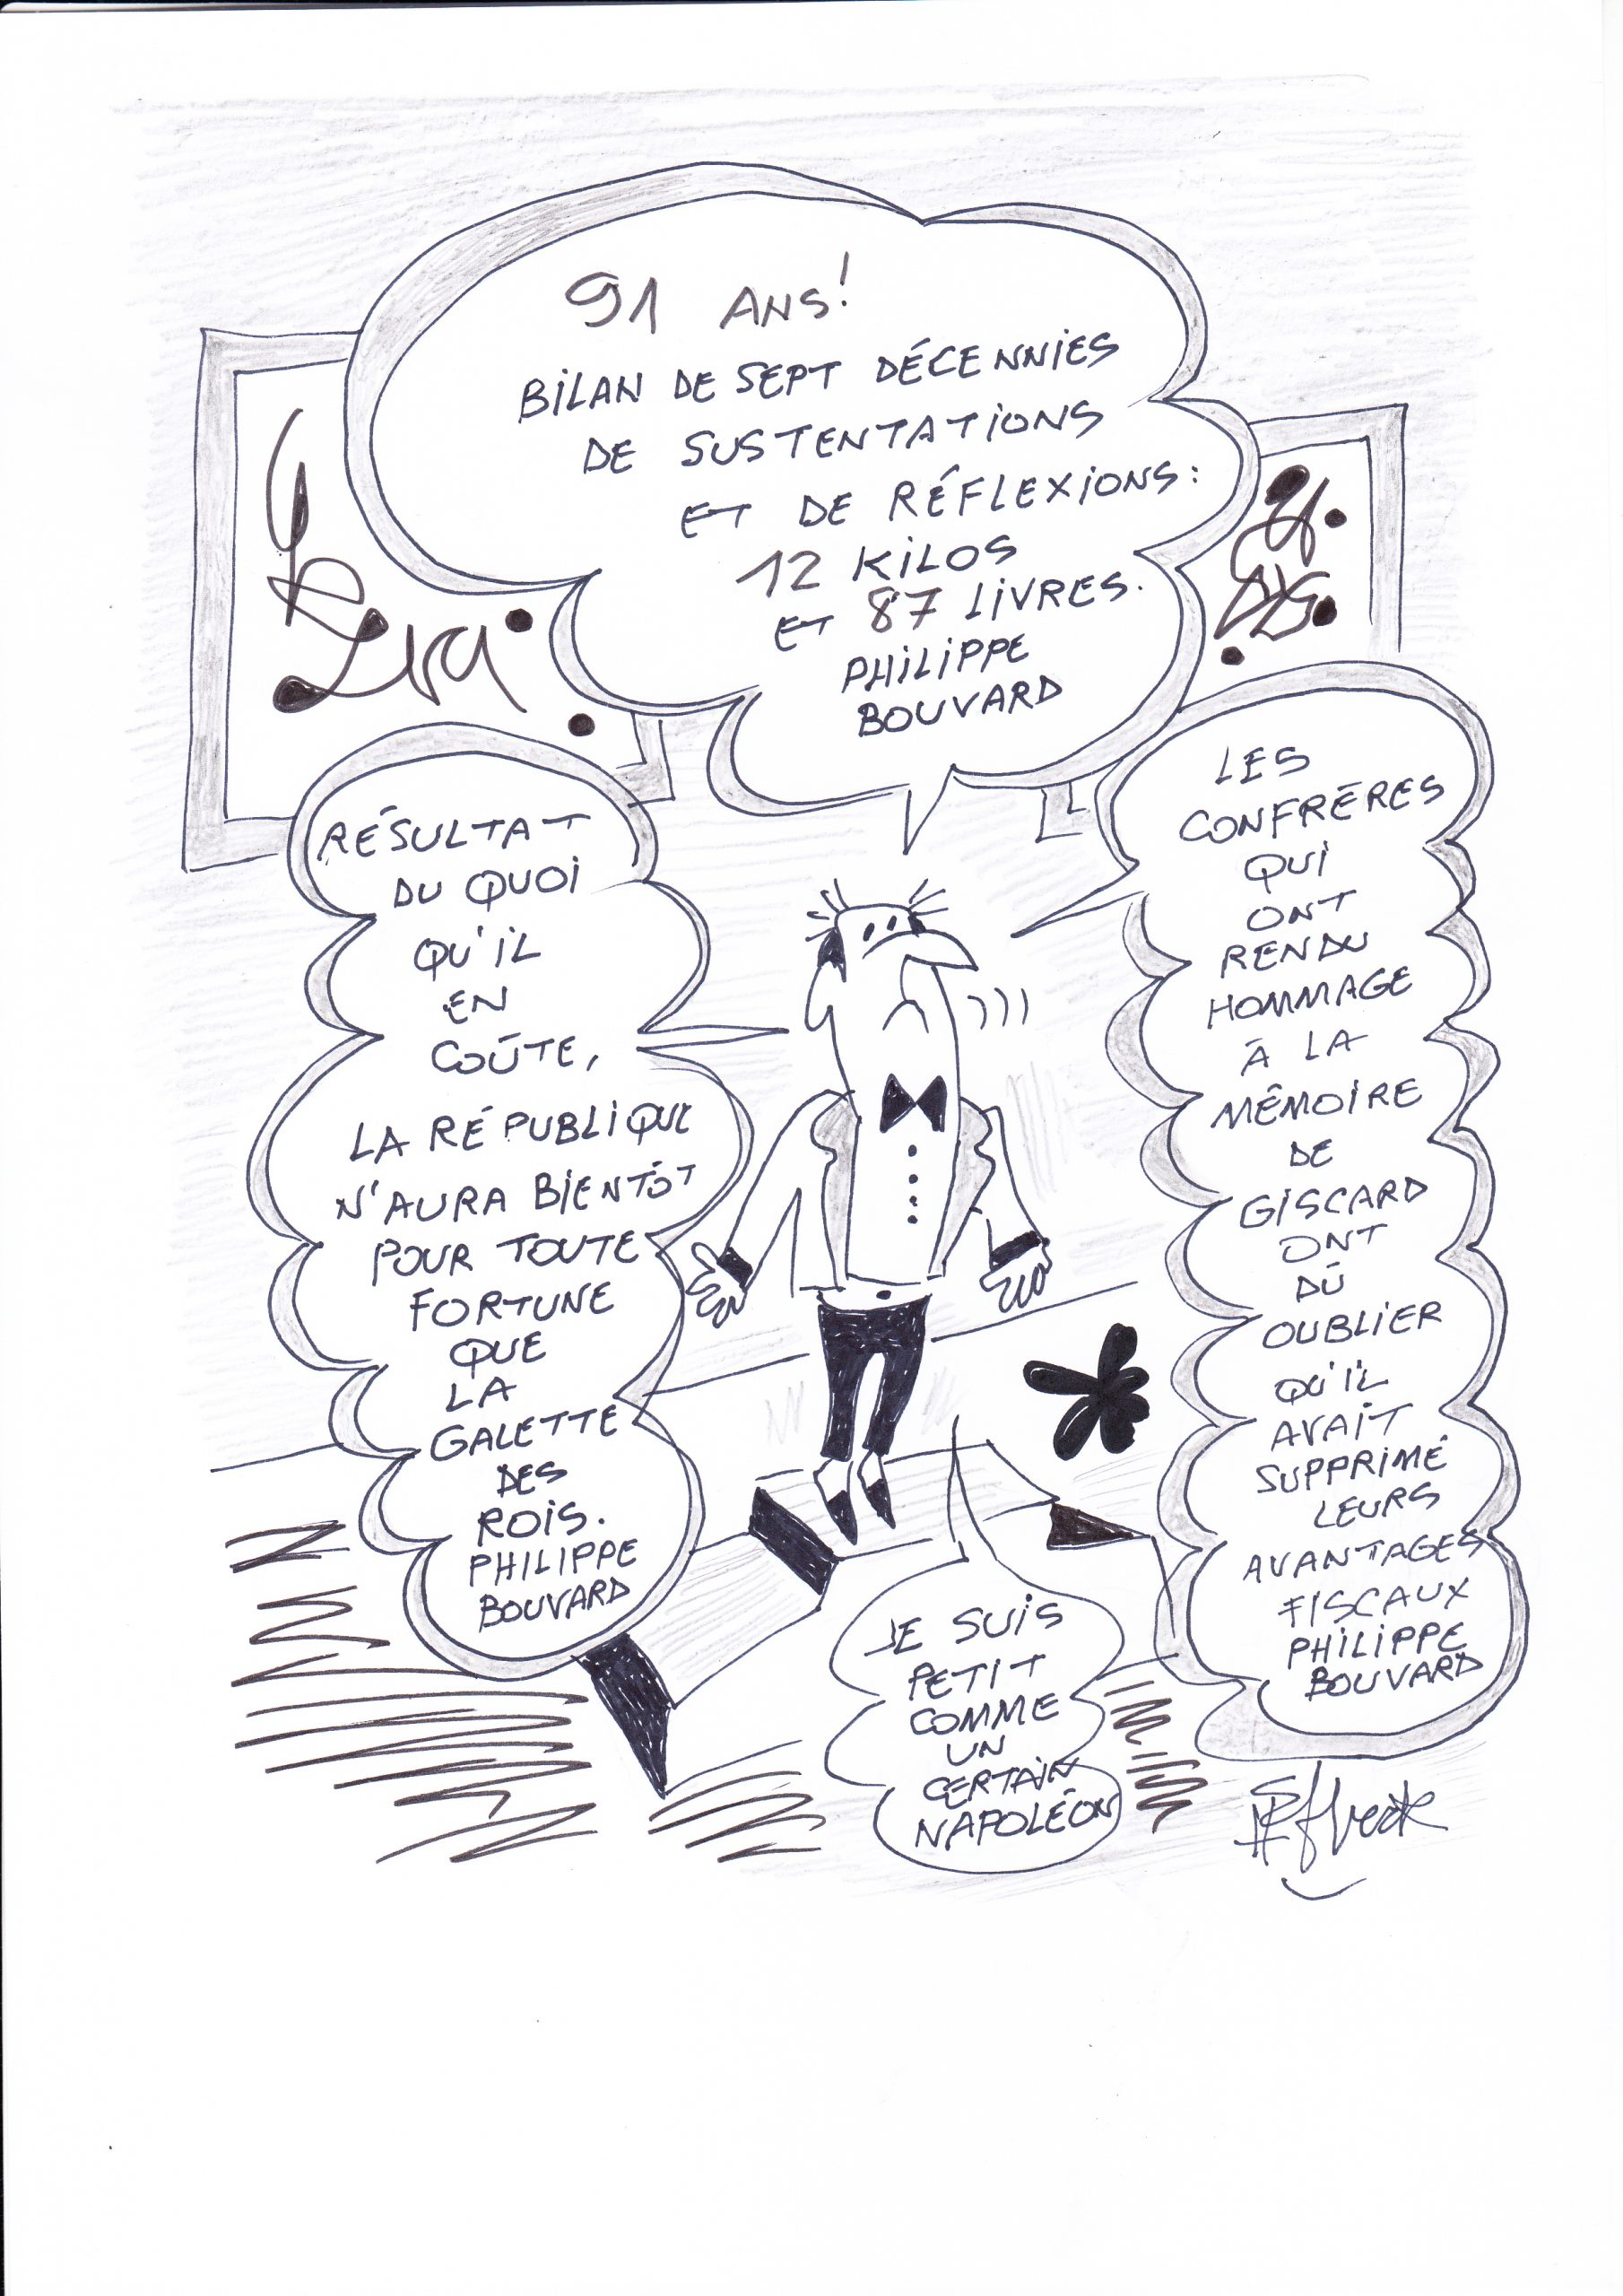 91 ANS!
BILAN DE SEPT DÉCENNIES
DE SUSTENTATIONS
ET DE RÉFLEXIONS:
12 KILOS
ET 87 LIVRES.
PHILIPPE
BOUVARD
RÉSULTAT
DU QUOI
QU'IL
EN
COÛTE,
LA RÉPUBLIQUE
N'AURA BIENTÔT
POUR TOUTE
FORTUNE
QUE
LA
GALETTE
DES
ROIS.
PHILIPPE
BOUVARD
LES
CONFRÈRES
QUI
ONT
RENDU
HOMMAGE
À LA
MÉMOIRE
DE
GISCARD
ONT
DÛ
OUBLIER
QU'IL
AVAIT
SUPPRIMÉ
LEURS
AVANTAGES
FISCAUX
PHILIPPE
BOUVARD
JE SUIS
PETIT
COMME
UN
CERTAIN
NAPOLÉON